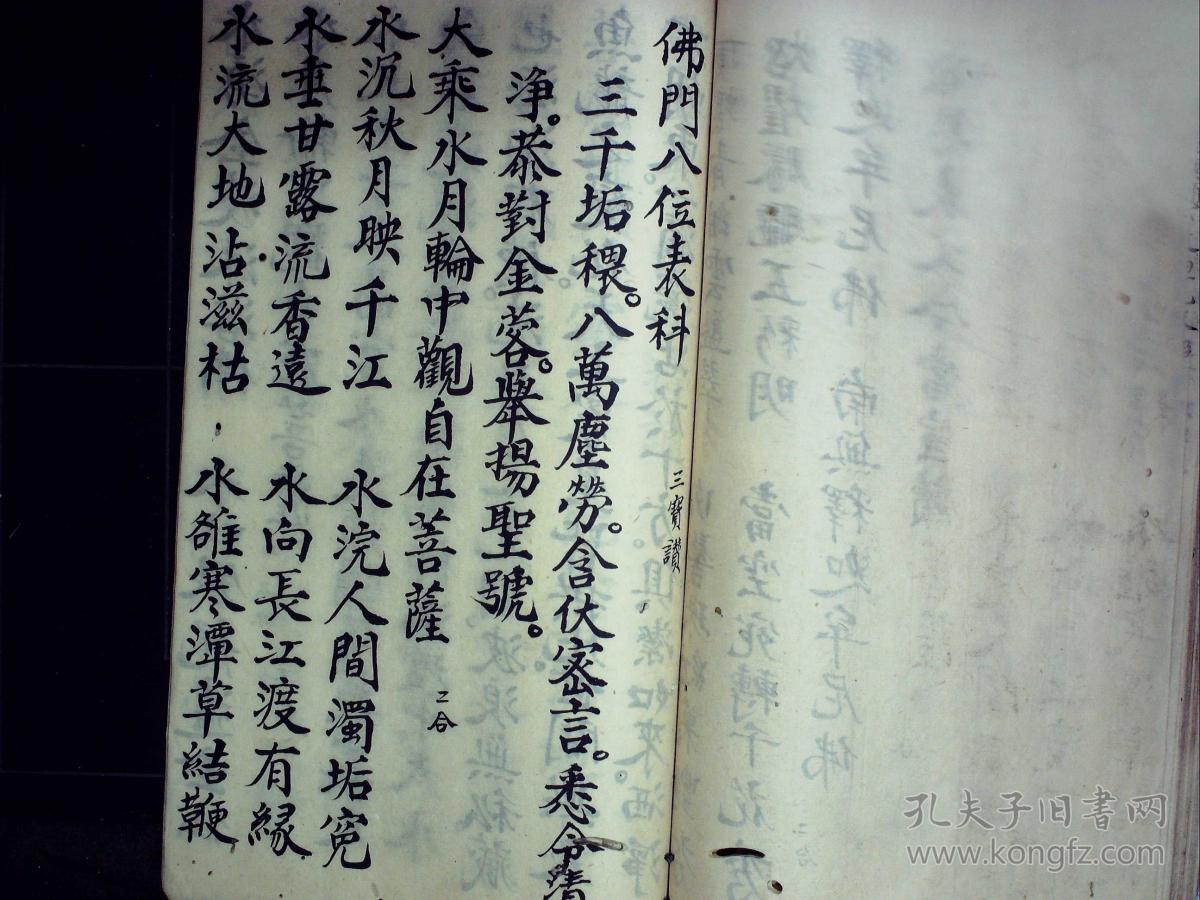 佛門八位表科 三寶讚
三千垢穢。八萬塵勞。含伏密言。悉令清
浄。恭對金容。舉揚聖號。
大乘水月輪中觀自在菩薩 二合
水沉秋月映千江 水浣人間濁垢寃
水垂甘露流香遠 水向長江渡有緣
水流大地沾滋枯 水雒寒潭草結鞕
孔夫子旧書网
www.kongfz.com